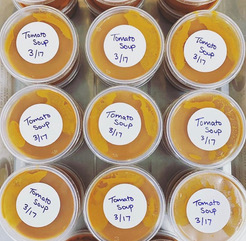 Tomato
Soup
3/17
Tomato
Soup
3/17
Tomato
Soup
3/17
Tomato
Soup
3/17
Tomato
Soup
3/17
Tomato
Soup
3/17
Tomato
Soup
3/17
Tomato
Soup
3/17
Tomato
Soup
3/17